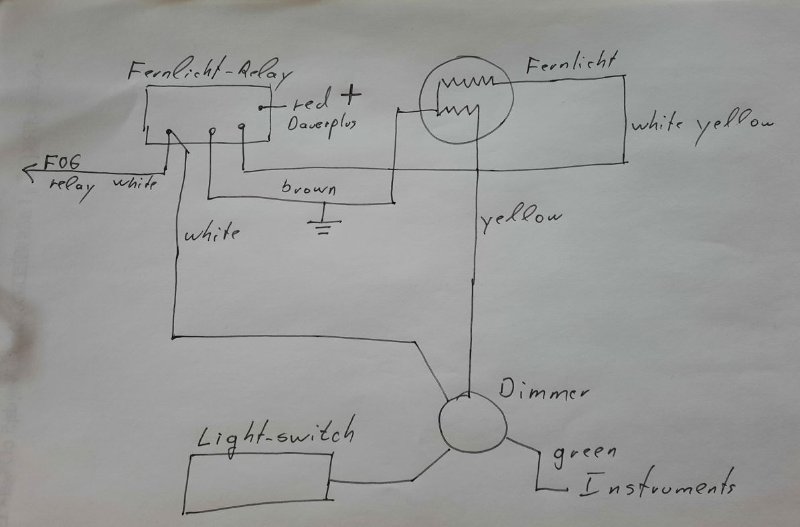 Fernlicht-Relay
red +
Dauerplus
Fernlicht
white yellow
FOG
relay white
brown
white
yellow
Dimmer
Light-switch
green
Instruments